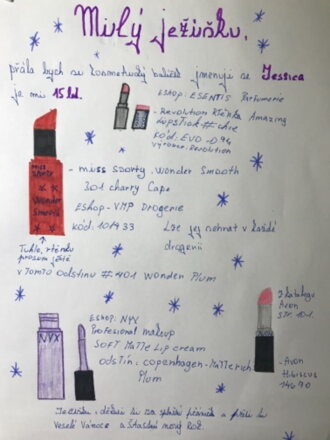 Milý ježíšku,
přála bych si kosmetický balíček jmenuji se Jessica
je mi 15 let.
ESHOP: ESENTIS Parfumerie
- Revolution rtěnka Amazing
Lopstick # chic
kód: EVO-094
výrobce: Revolution
- miss sporty. Wonder Smooth
301 charry Cape
Eshop - VMP Drogerie
kód: 101433
Lze jej sehnat v každé
drogerii
miss
sporty
Wonder
Smooth
Tuhle rtěnku
prosím ještě
v tomto odstínu #401 Wonder Plum
ESHOP: NYX
Profesional makeup
SOFT Matte Lip cream
odstín: copenhagen - Matte rich
Plum
NYX
Z katalogu
Avon
STR. 101.
- Avon
Hibiscus
14670
Ježíšku, děkuji za splnění přáníčka a přeji ti
Veselé Vánoce a Šťastný nový Rok.